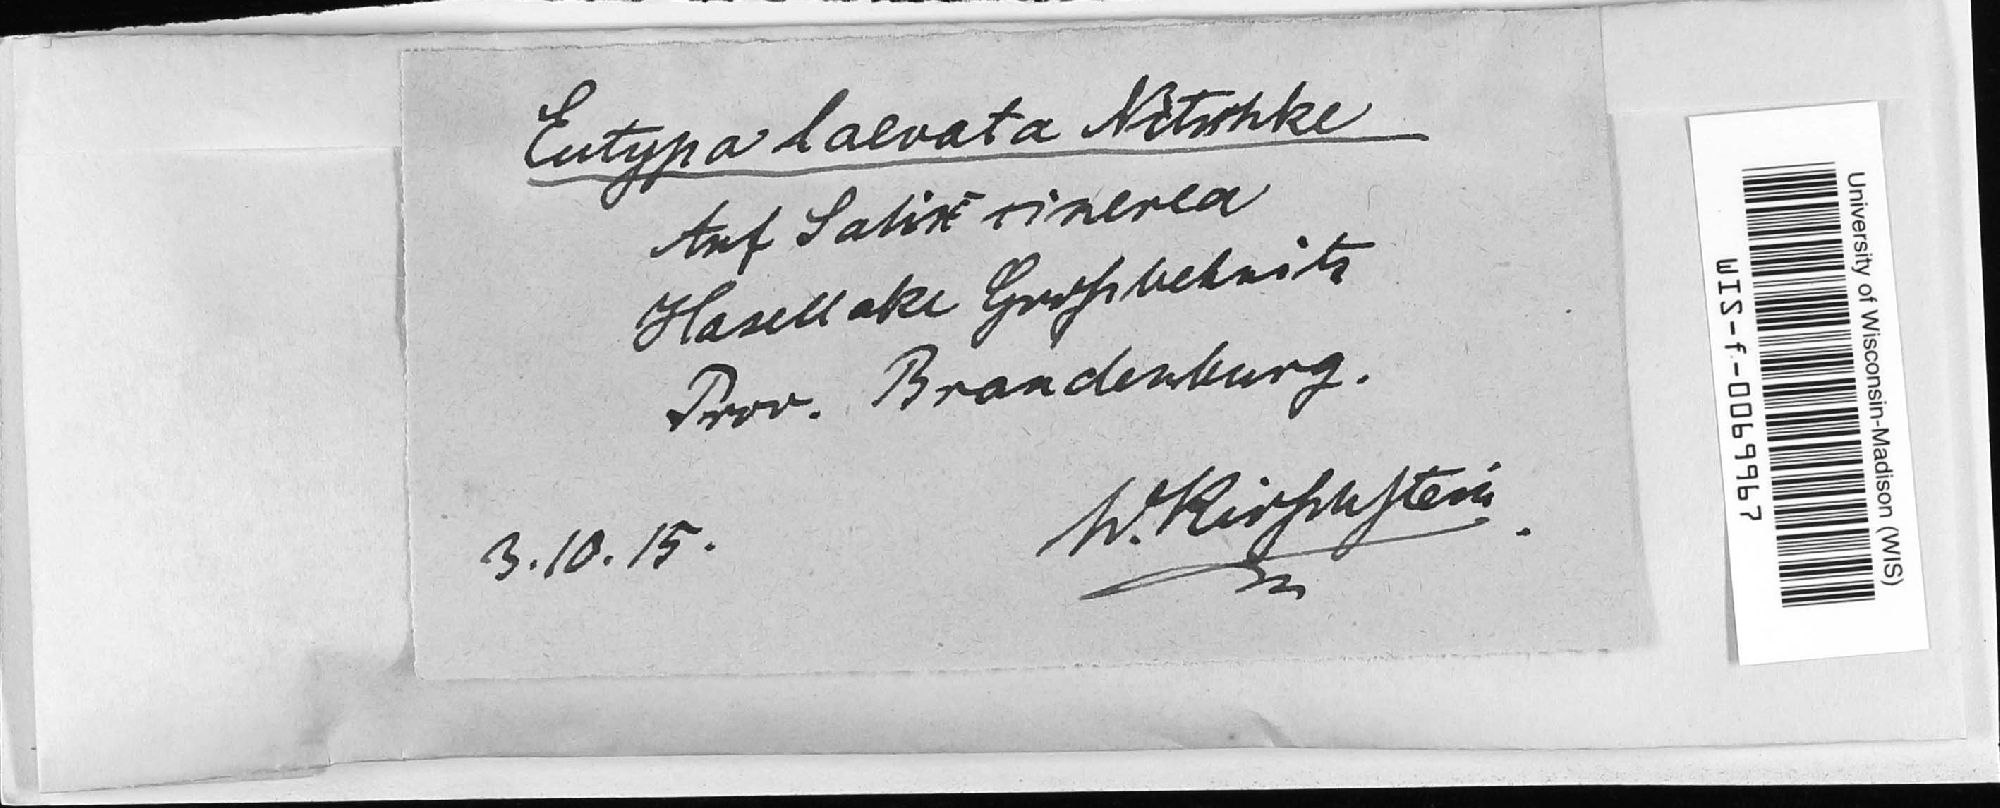 Eutypa laevata Nitschke
Auf Salix cinerea
Hasellake Großbehnitz
Prov. Brandenburg.
3.10.15.
W. Kirschstein.
University of Wisconsin-Madison (WIS)
WIS-f-0069967